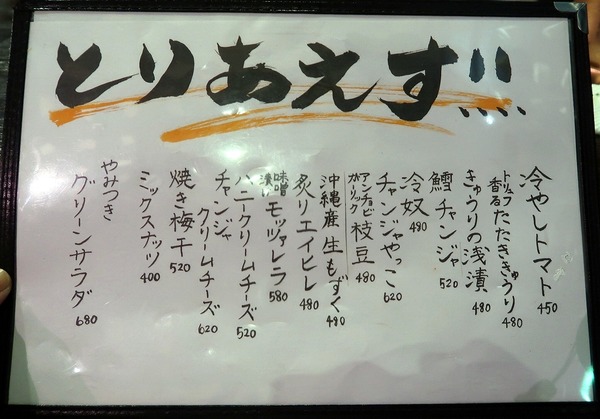 とりあえず!!!
冷やしトマト 450
トリュフ香るたたききゅうり 480
きゅうりの浅漬 480
鱈チャンジャ 520
冷奴 480
チャンジャやっこ 620
アンチョビガーリック枝豆 480
沖縄産生もずく 480
炙りエイヒレ 480
味噌漬けモッツァレラ 580
ハニークリームチーズ 520
チャンジャクリームチーズ 620
焼き梅干 520
ミックスナッツ 400
やみつきグリーンサラダ 680